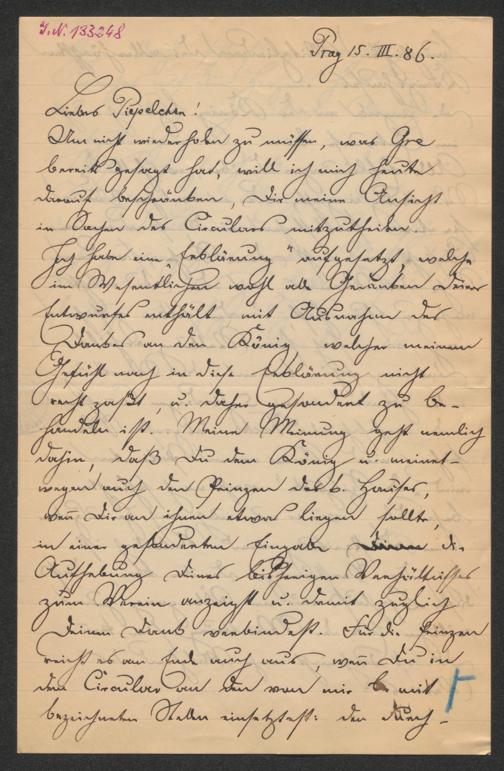 J. N. 133248
Prag 15. III. 86.
Liebes Piepelchen!
Um nicht wiederholen zu müssen, was Gre
bereits gesagt hat, will ich mich heute
darauf beschränken, Dir meine Ansicht
in Sachen des Circulars mitzutheilen.
Ich habe eine „Erklärung“ aufgesetzt, welche
im Wesentlichen wohl alle Gedanken Deines
Entwurfes enthält mit Ausnahme des
Dankes an den König, welcher meinem
Gefühl nach in diese Erklärung nicht
recht paßt, u. daher gesondert zu be-
handeln ist. Meine Meinung geht nemlich
dahin, daß Du dem König u. meinet-
wegen auch den Prinzen des b. Hauses,
wenn Dir an ihnen etwas liegen sollte,
in einer gesonderten Eingabe die
Aufhebung Deines bisherigen Verhältnisses
zum Verein anzeigst u. damit zugleich
Deinen Dank verbindest. Für die Prinzen
reicht es am Ende auch aus, wenn Du in
dem Circular an den von mir mit
bezeichneten Stellen einsetztest: den durch-